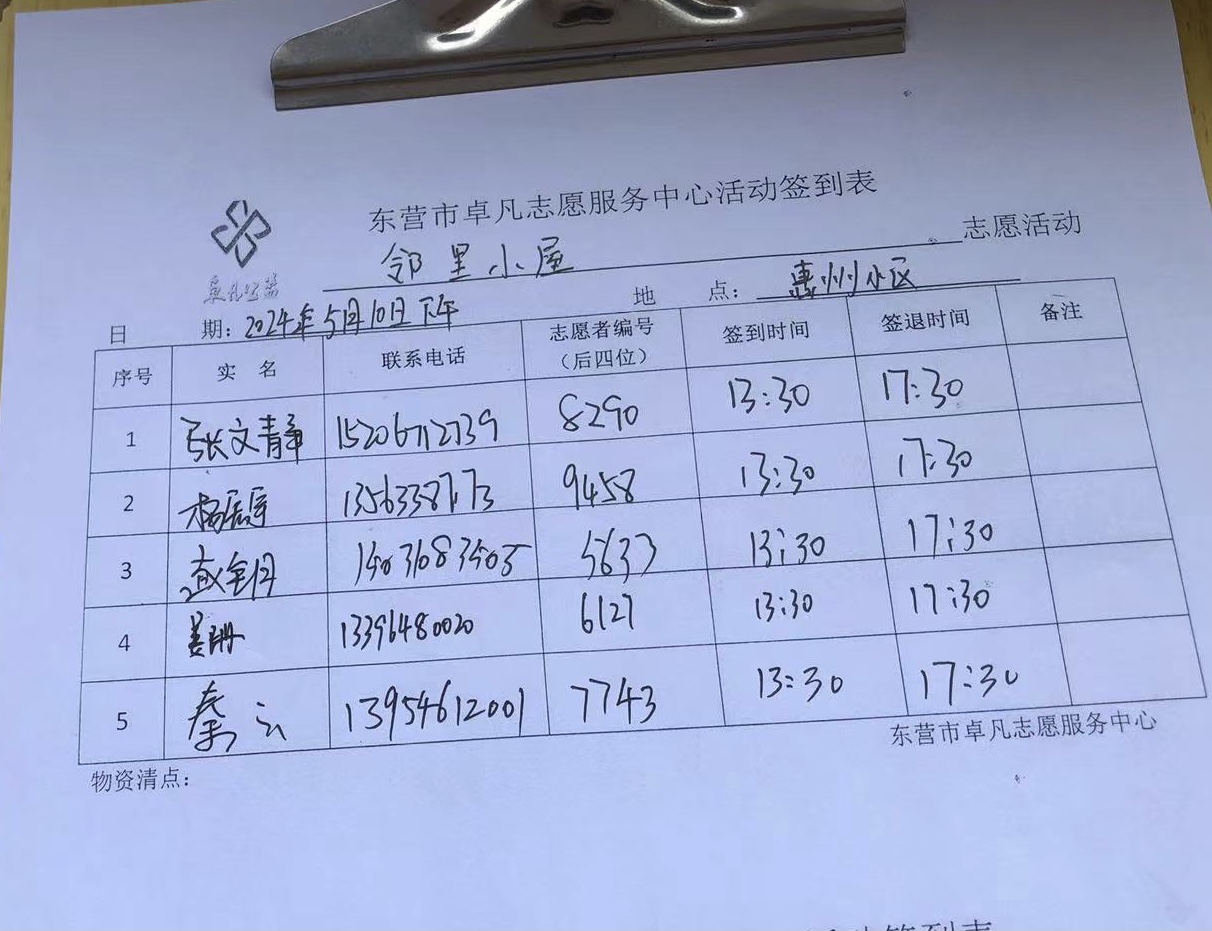 东营市卓凡志愿服务中心活动签到表
邻里小屋 志愿活动
卓凡公益
日 期：2024年5月10日下午 地 点：惠州小区
序号 实 名 联系电话 志愿者编号（后四位） 签到时间 签退时间 备注
1 张文静 15206712739 8290 13:30 17:30
2 9458 13:30 17:30
3 5633 13:30 17:30
4 姜珊 13396480020 6127 13:30 17:30
5 秦云 13954612001 7743 13:30 17:30
东营市卓凡志愿服务中心
物资清点：